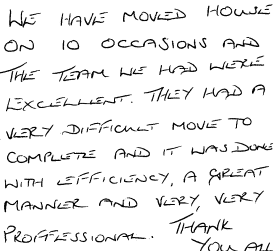 WE HAVE MOVED HOUSE
ON 10 OCCASIONS AND
THE TEAM WE HAD WERE
EXCELLENT. THEY HAD A
VERY DIFFICULT MOVE TO
COMPLETE AND IT WAS DONE
WITH EFFICIENCY, A GREAT
MANNER AND VERY, VERY
PROFFESSIONAL. THANK
YOU ALL